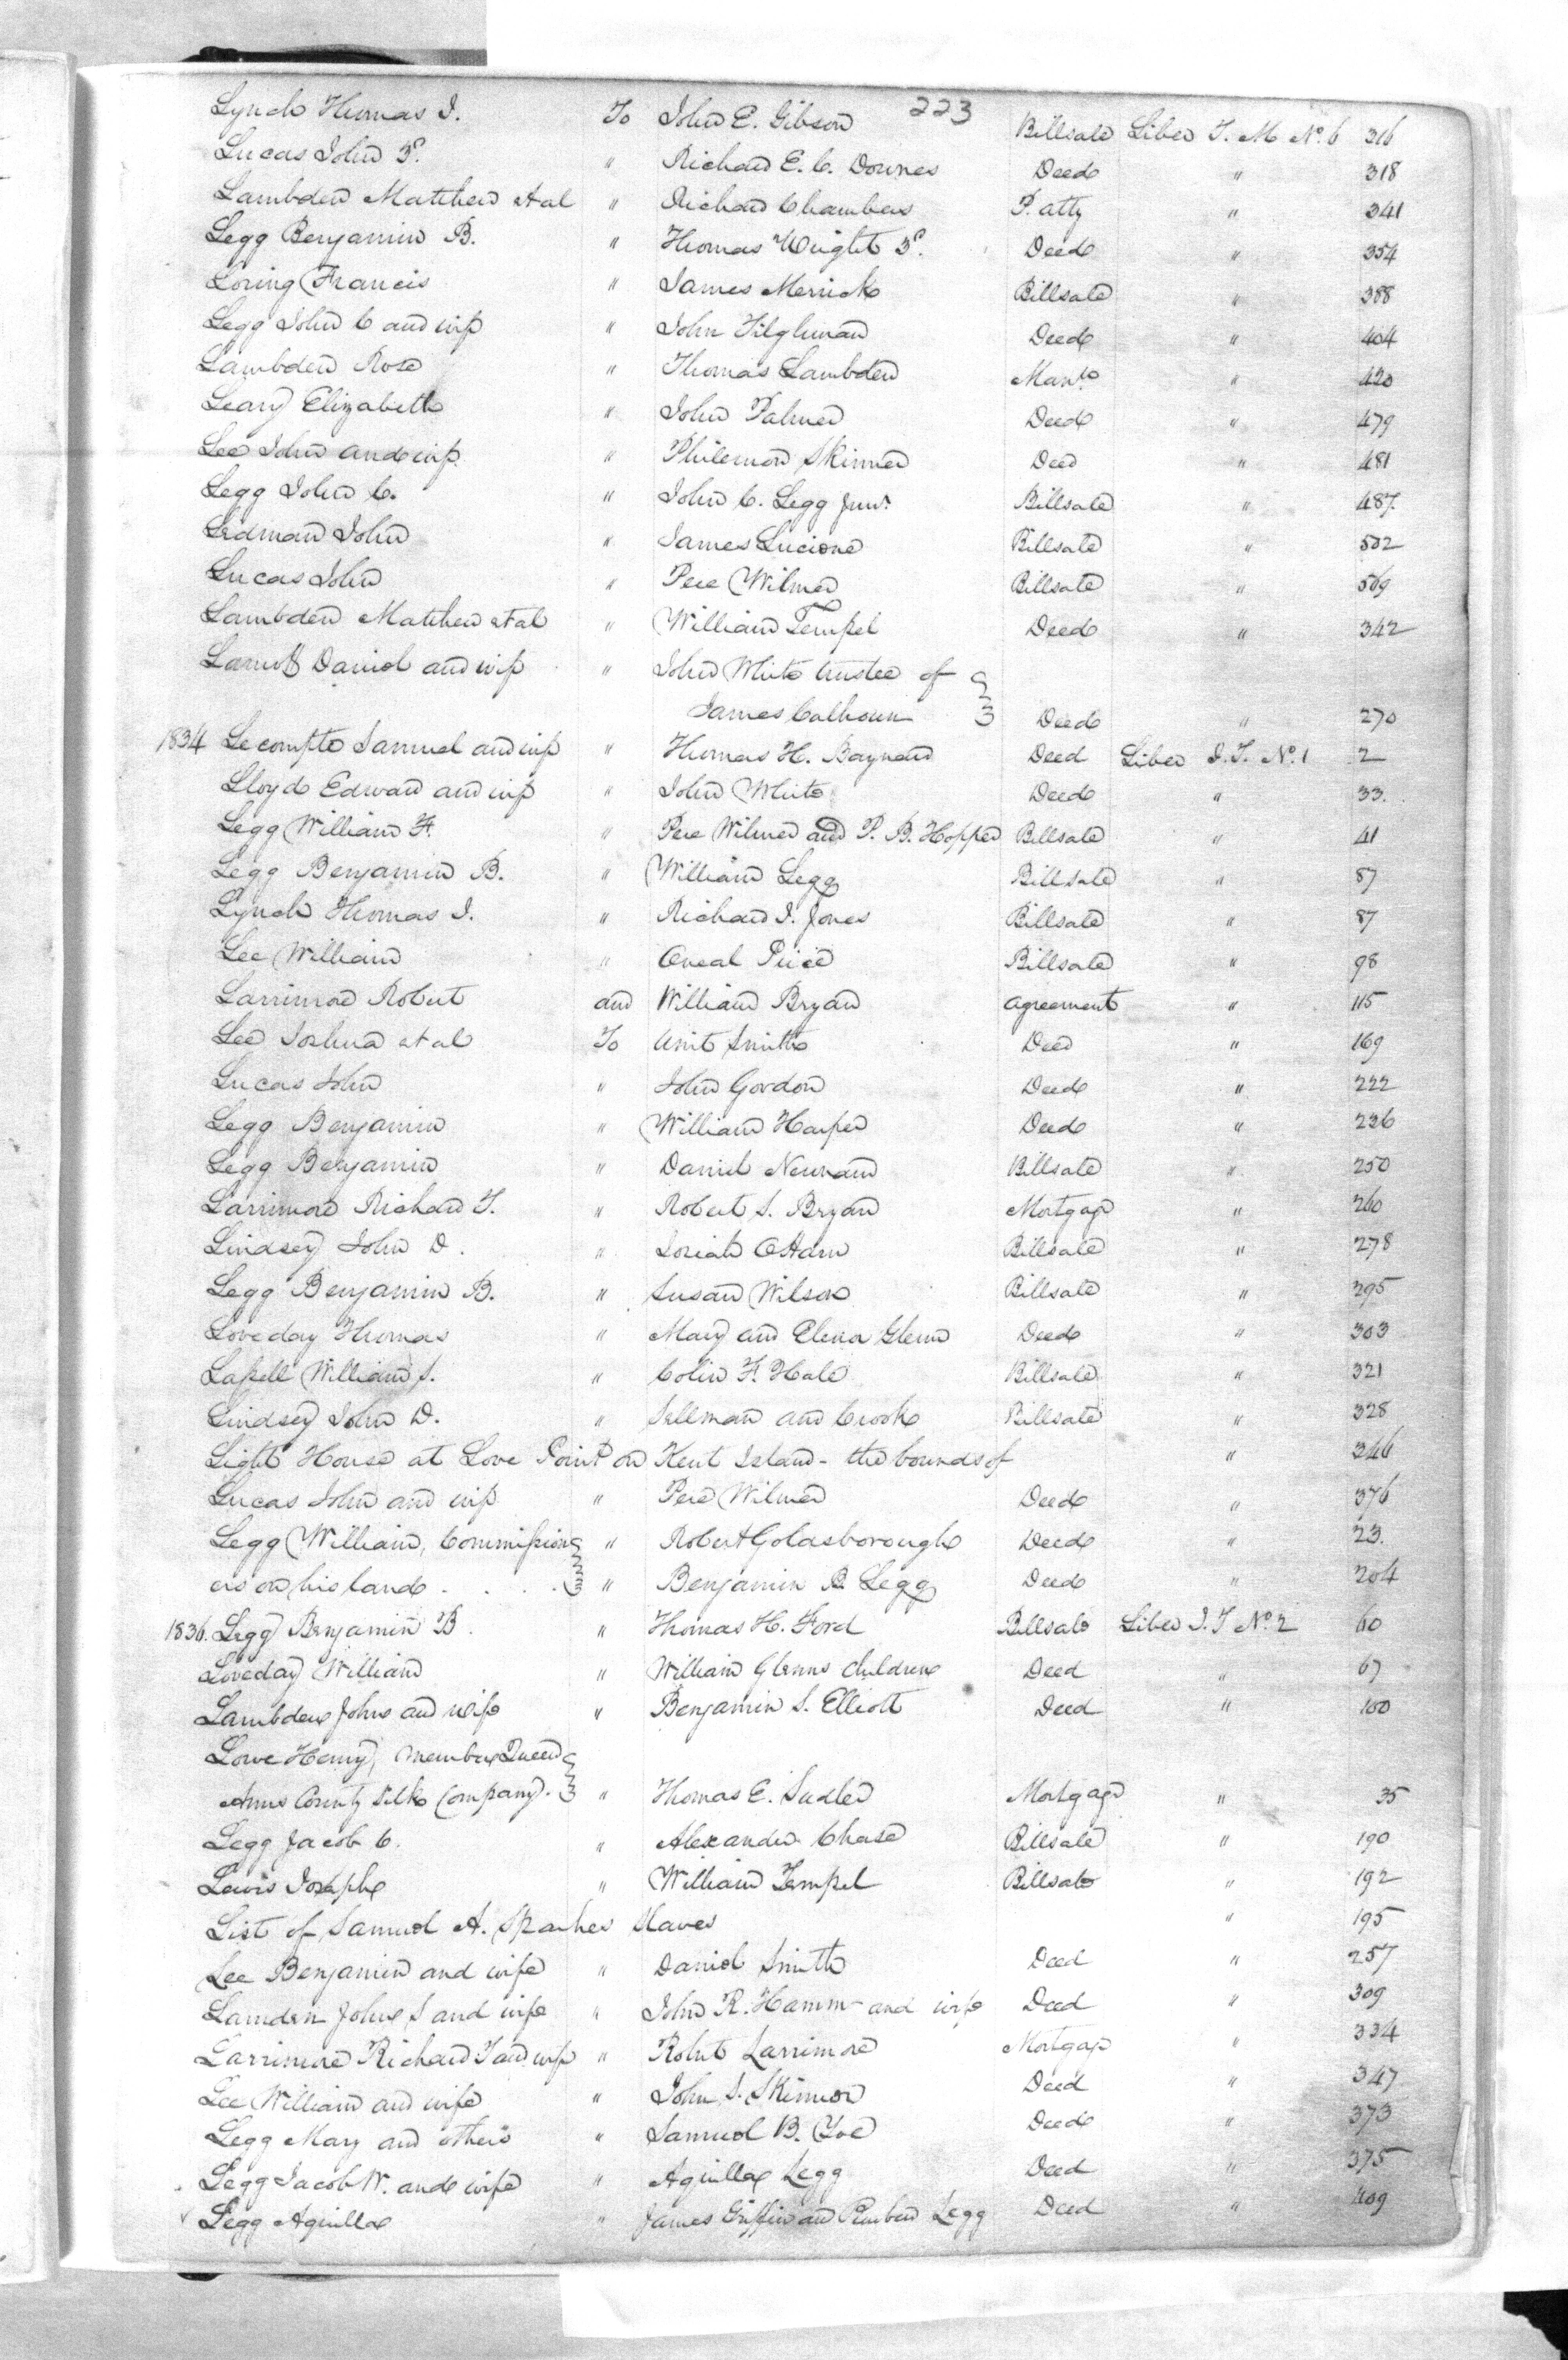 223
Lynch Thomas J. To John E. Gibson Billsale Liber T. M No. 6 316
Lucas John Sr. " Richard E. C. Downes Deed " 318
Lambden Matthew et al " Richard Chambers P. atty " 341
Legg Benjamin B. " Thomas Wright 3d. Deed " 354
Loring Francis " James Merrick Billsale " 388
Legg John C and wife " John Tilghman Deed " 404
Lambden Rose " Thomas Lambden " 420
Leary Elizabeth " John Palmer Deed " 479
Lee John and wife " Philemon Skinner Deed " 481
Legg John C. " John C. Legg Junr. Billsale " 487.
Ledman John " James Lucione Billsale " 502
Lucas John " Pere Wilmer Billsale " 569
Lambden Matthew et al " William Tempel Deed " 342
Daniel and wife " John White trustee of
James Calhoun Deed " 270
1834 Lecompte Samuel and wife " Thomas H. Baynard Deed Liber J. T. No. 1 2
Lloyd Edward and wife " John White Deed " 33.
Legg William F. " Pere Wilmer and P. B. Hopper Billsale " 41
Legg Benjamin B. " William Legg Billsale " 87
Lynch Thomas J. " Richard J. Jones Billsale " 87
Lee William " Oneal Price Billsale " 98
Larrimore Robert and William Bryan agreement " 115
Lee Joshua et al To Unit Smith Deed " 169
Lucas John " John Gordon Deed " 222
Legg Benjamin " William Harper Deed " 226
Legg Benjamin " Daniel Newnam Billsale " 250
Larrimore Richard T. " Robert S. Bryan Mortgage " 260
Lindsey John D. " Billsale " 278
Legg Benjamin B. " Susan Wilson Billsale " 295
Loveday Thomas " Mary and Elena Glenn Deed " 303
Lassell William S. " Colin F. Hale Billsale " 321
Lindsey John D. " Sellman and Crook Billsale " 328
Light House at Love Point on Kent Island - the bounds of " 346
Lucas John and wife " Pere Wilmer Deed " 376
Legg William, Commission " Robert Goldsborough Deed " 23.
ers on his land . . . . " Benjamin B Legg Deed " 204
1836. Legg Benjamin B. " Thomas H. Ford Billsale Liber J. T No. 2 60
Loveday William " William Glenns children Deed " 67
Lambden John and wife " Benjamin S. Elliott Deed " 100
Lowe Henry, member Queen
Anns County Silk Company. " Thomas E. Sudler Mortgage " 35
Legg Jacob C. " Alexander Chase Billsale " 190
Lewis Joseph " William Tempel Billsale " 192
List of Samuel A. Sparkes Slaves " 195
Lee Benjamin and wife " Daniel Smith Deed " 257
Lamden John S and wife " John R. Hamm and wife Deed " 309
Larrimore Richard T and wife " Robert Larrimore Mortgage " 334
Lee William and wife " John S. Skinner Deed " 347
Legg Mary and others " Samuel B. Yoe Deed " 373
Legg Jacob W. and wife " Aquilla Legg Deed " 375
Legg Aquilla " James Griffin and Reuben Legg Deed " 409